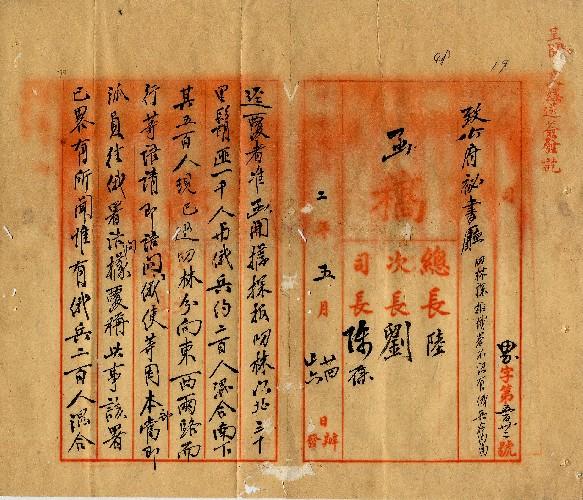 呈
遞
簽發訖
19
致公府秘書廳
字第
號
函稿
總長 陸
次長 劉
司長 陳
二年五月
廿四
廿六
日
辦
發
逕覆者准函開據探報叨林以北三十
里鬍匪一千人与俄兵約二百人混合南下
其五百人現已過叨林分向東西兩路而
行等語請即詰問俄使等因本部當即
派員往俄署詰問據覆稱此事該署
已畧有所聞惟有俄兵二百人混合